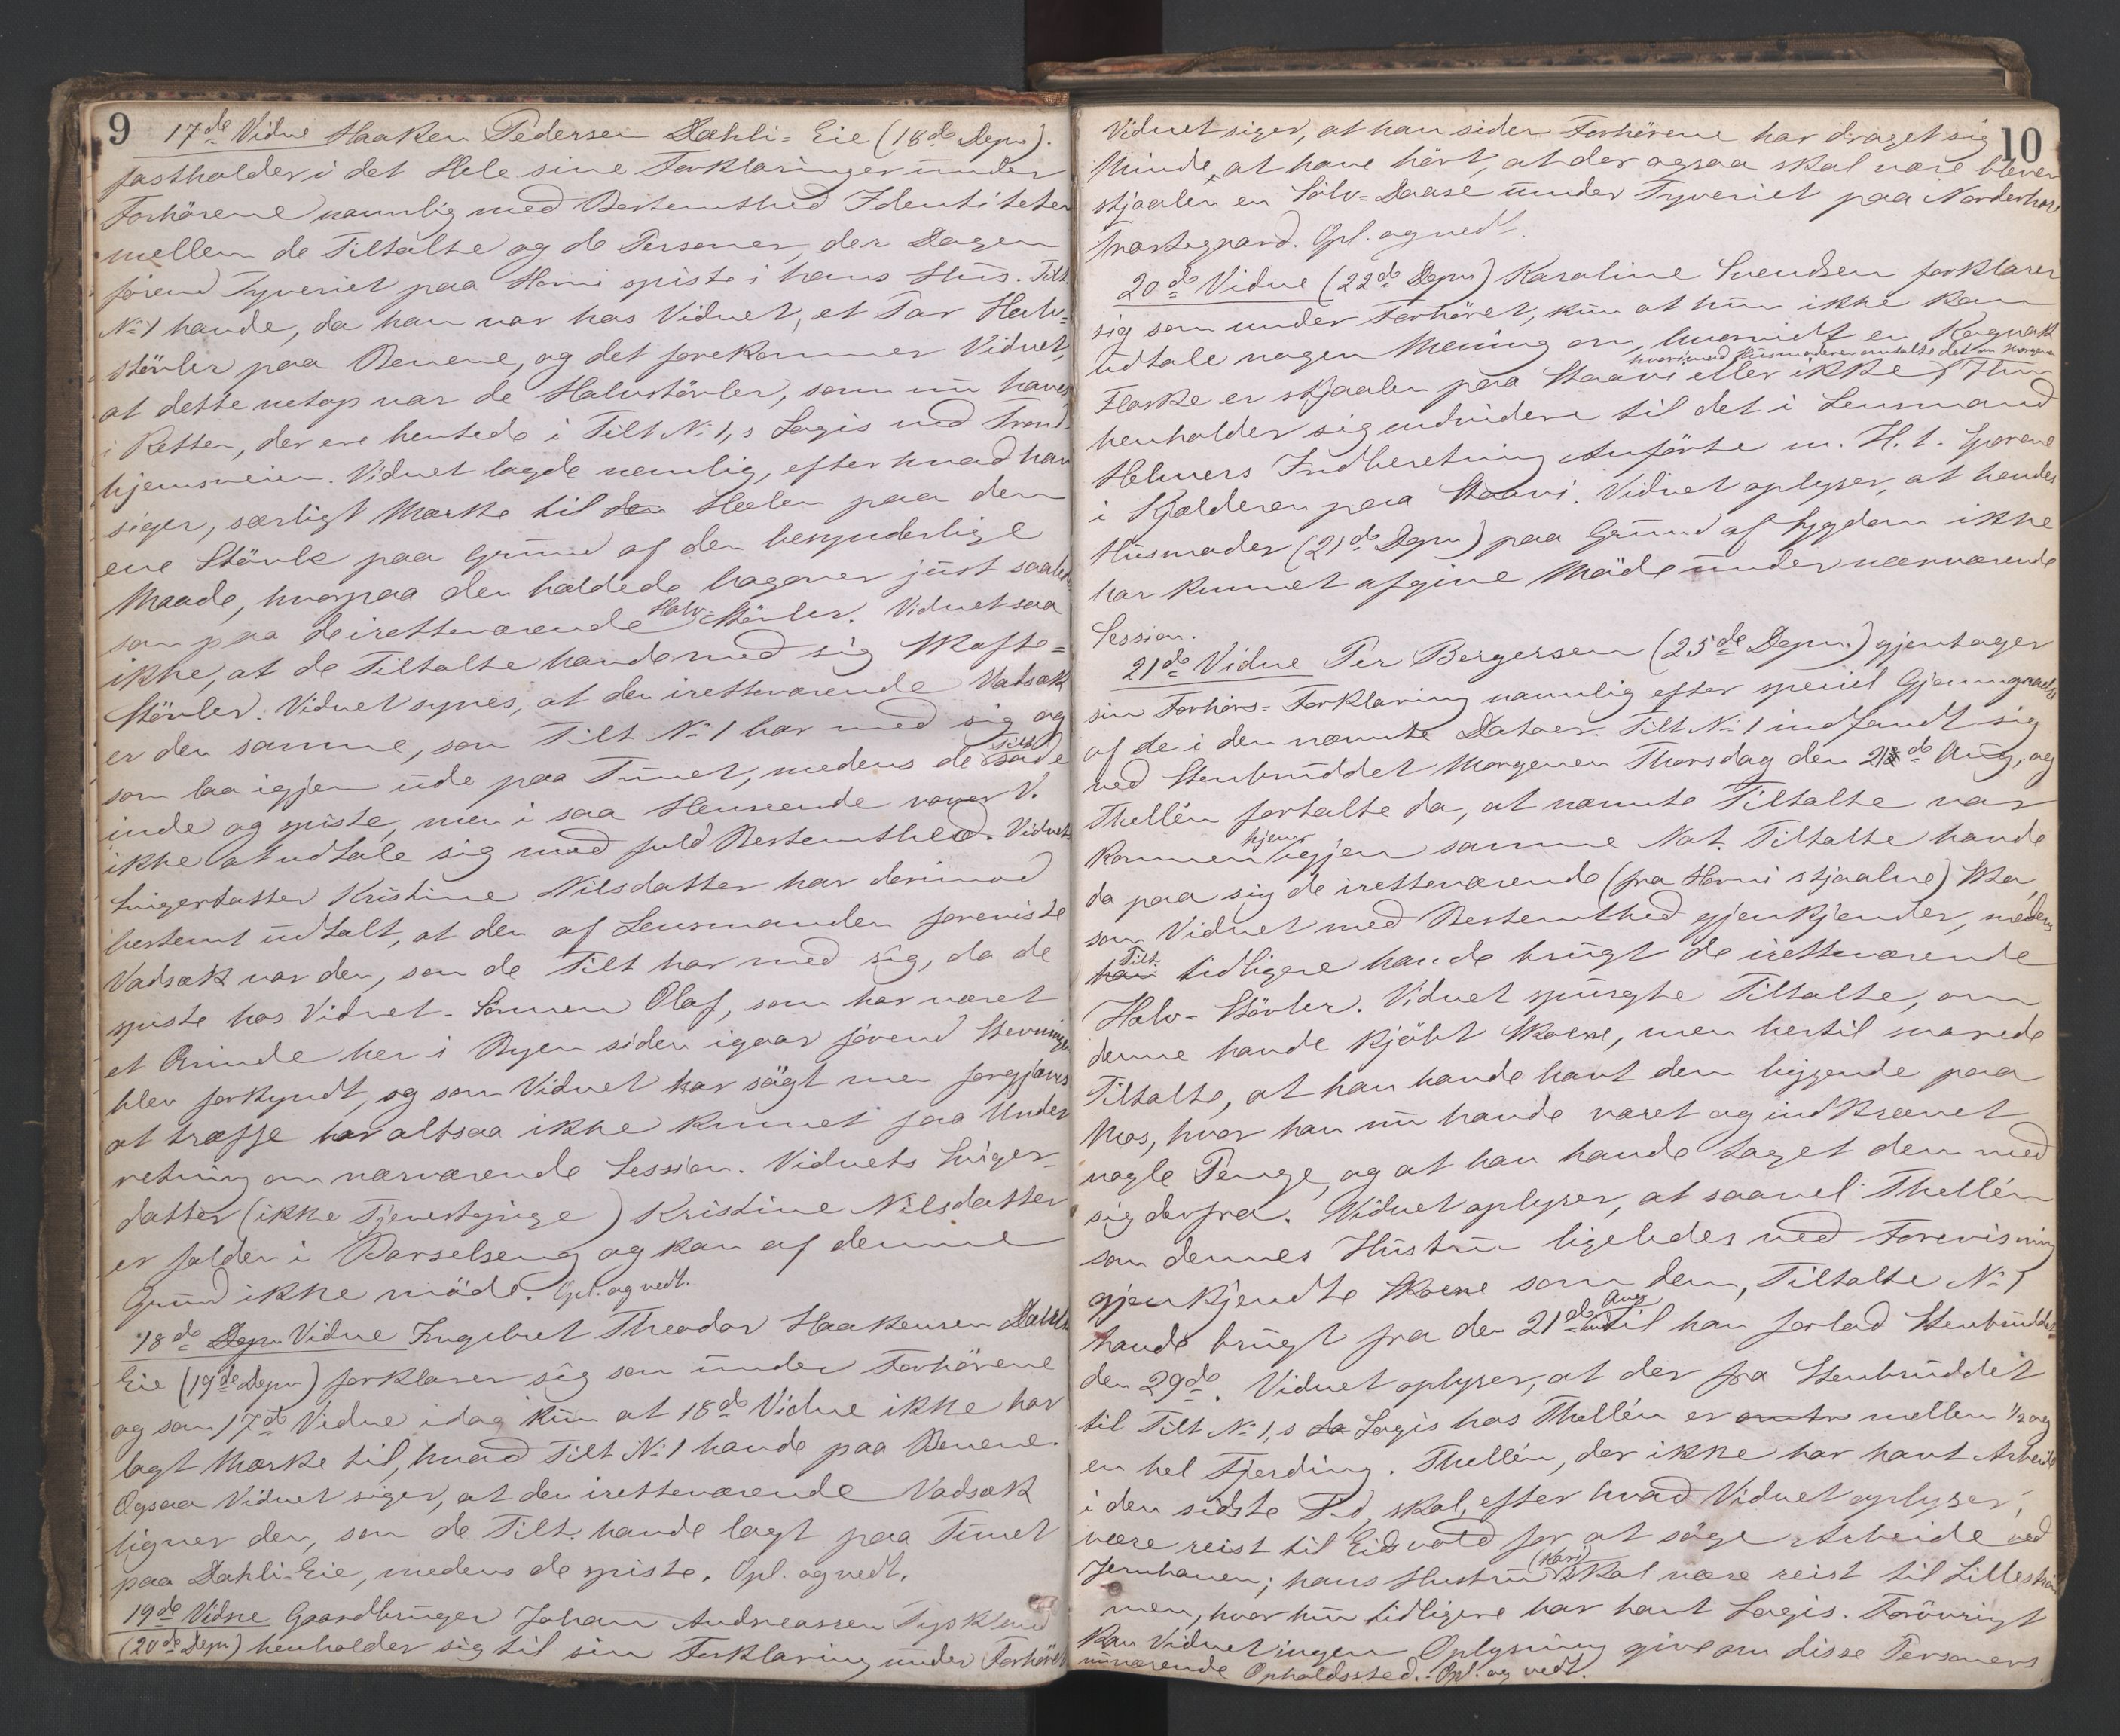 9
17de Vidne Haaken Pedersen Dæhli-Eie (18de Depn).
fastholder i det Hele sine Forklaringer under
Forhörene navnlig med Bestemthed Identiteten
mellem de Tiltalte og de Personer, der Dagen
förend Tyveriet paa Horni spiste i hans Hus. Tilt.
No 1 havde, da han var hos Vidnet, et Par Halv-
stövler paa Benene, og det forekommer Vidnet,
at dette netop var de Halvstövler, som nu haves
i Retten, der ere hentede i Tilt No 1,s Logis ved Trond-
hjemsveien. Vidnet lagde nemlig, efter hvad han
siger, særligt Mærke til den Hælen paa den
ene Stövle paa Grund af den besynderlige
Maade, hvorpaa den hældede bagover just saaled
som paa de iretteværende Halv-Stövler. Vidnet saa
ikke, at de Tiltalte havde med sig Skafte-
Stövler. Vidnet synes, at den iretteværende Vadsæk
er den samme, som Tilt No 1 har med sig og
som laa igjen ude paa Tunet, medens de Tiltl sade
inde og spiste, men i saa Henseende vover V.
ikke at udtale sig med fuld Bestemthed. Vidnets
Svigerdatter Kristine Nilsdatter har derimod
bestemt udtalt, at den af Lensmanden foreviste
Vadsæk var den, som de Tilt har med sig, da de
spiste hos Vidnet. Sönnen Olaf, som har været
et Ærinde her i Byen siden igaar förend Stevningen
blev forkyndt, og som Vidnet har sögt men forgjæves
at træffe har altsaa ikke kunnet faa Under
retning om nærværende Session. Vidnets Sviger-
datter (ikke Tjenestepige) Kristine Nilsdatter
er falden i Barselseng og kan af denne
Grund ikke möde. Opl. og vedt.
18de Depn Vidne Ingebret Theodor Haakensen Dæhli
Eie (19de Depn) forklarer sig som under Forhörene
og som 17de Vidne idag kun at 18de Vidne ikke har
lagt Mærke til, hvad Tilt No 1 havde paa Benene.
Ogsaa Vidnet siger, at den iretteværende Vadsæk
ligner den, som de Tilt. havde lagt paa Tunet
paa Dahli-Eie, medens de spiste. Opl. og vedt.
19de Vidne Gaardbruger Johan Andreassen Tysklund
(20de Depn) henholder sig til sin Forklaring under Forhöret
10
Vidnet siger, at han siden Forhörene har draget sig
Minde, at have hört, at der ogsaa skal være bleven
stjaalen en Sölv-Daase under Tyveriet paa Norderhov
Præstegaard. Opl. og vedt.
20de Vidne (22de Depn) Karoline Svendsen forklarer
sig som under Forhöret, kun at hun ikke kan
udtale nogen Mening om, hvorvidt en Kognak
hvorimod Husmoderen omtalte det om Morgen
Flaske er stjaalen paa Staavi eller ikke. Hun
henholder sig endvidere til det i Lensmand
Helmers Indberetning Anförte m. H. t. Sporene
i Kjælderen paa Staavi. Vidnet oplyser, at hendes
Husmoder (21de Depn) paa Grund af Sygdom ikke
har kunnet afgive Möde under nærværende
Session.
21de Vidne Per Bergersen (25de Depn.) gjentager
sin Forhörs-Forklaring navnlig efter speciel Gjennemgaaelse
af de i den nævnte Datoer. Tilt No 1 indfandt sig
ved Stenbruddet Morgenen Thorsdag den 21de Aug, og
Thellén fortalte da, at nævnte Tiltalte var
kommen hjem igjen samme Nat. Tiltalte havde
da paa sig de iretteværende (fra Horni stjaalne) Sko,
som Vidnet med Bestemthed gjenkjender, medens
han Tilt. tidligere havde brugt de iretteværende
Halv-Stövler. Vidnet spurgte Tiltalte, om
denne havde kjöbt Skoene, men hertil svarede
Tiltalte, at han havde havt dem liggende paa
Mos, hvor han nu havde været og indkrævet
nogle Penge, og at han havde taget dem med
sig derfra. Vidnet oplyser, at saavel Thellén
som dennes Hustru ligeledes ved Forevisning
gjenkjendte Skoene som dem, Tiltalte No 1
havde brugt fra den 21de Aug indtil han forlod Stenbruddet
den 29de. Vidnet oplyser, at der fra Stenbruddet
til Tilt No 1,s Logis hos Thellén er mellem 1/2 og
en hel Fjerding. Thellén, der ikke har havt Arbeide
i den sidste Tid, skal, efter hvad Vidnet oplyser,
være reist til Eidsvold for at söge Arbeide ved
Jernbanen; hans Hustru (Kari) skal være reist til Lilleström
men, hvor hun tidligere har havt Logis. Forövrigt
kan Vidnet ingen Oplysning give om disse Personers
nuværende Opholdssted. Opl. og vedt.